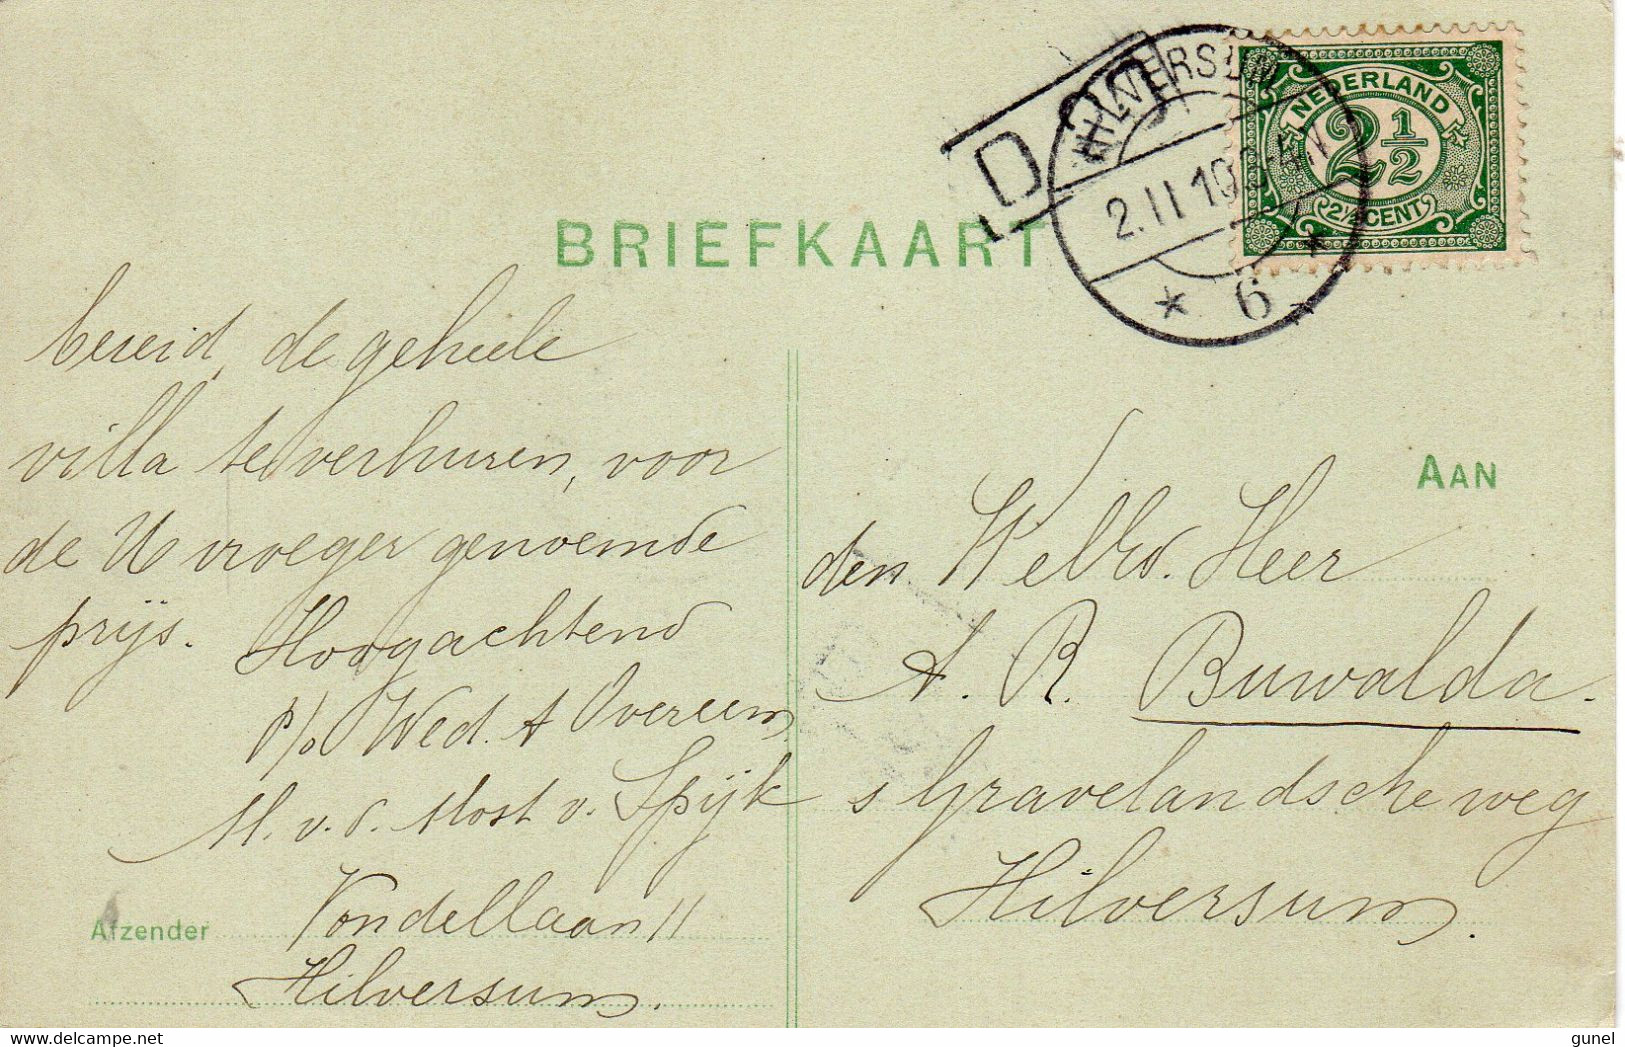 BRIEFKAART
HILVERSUM
2.II.10
* 6 *
NEDERLAND
2 1/2
2½ CENT
bereid, de geheele
villa te verhuren, voor
de U vroeger genoemde
prijs.
Hoogachtend
p/o Wed. A Overeem
M. v. d. Most v. Spijk
Afzender
Vondellaan 11
Hilversum.
AAN
den Heer
A. R. Buwalda.
s Gravelandscheweg
Hilversum.
Delcampe.net
gunel